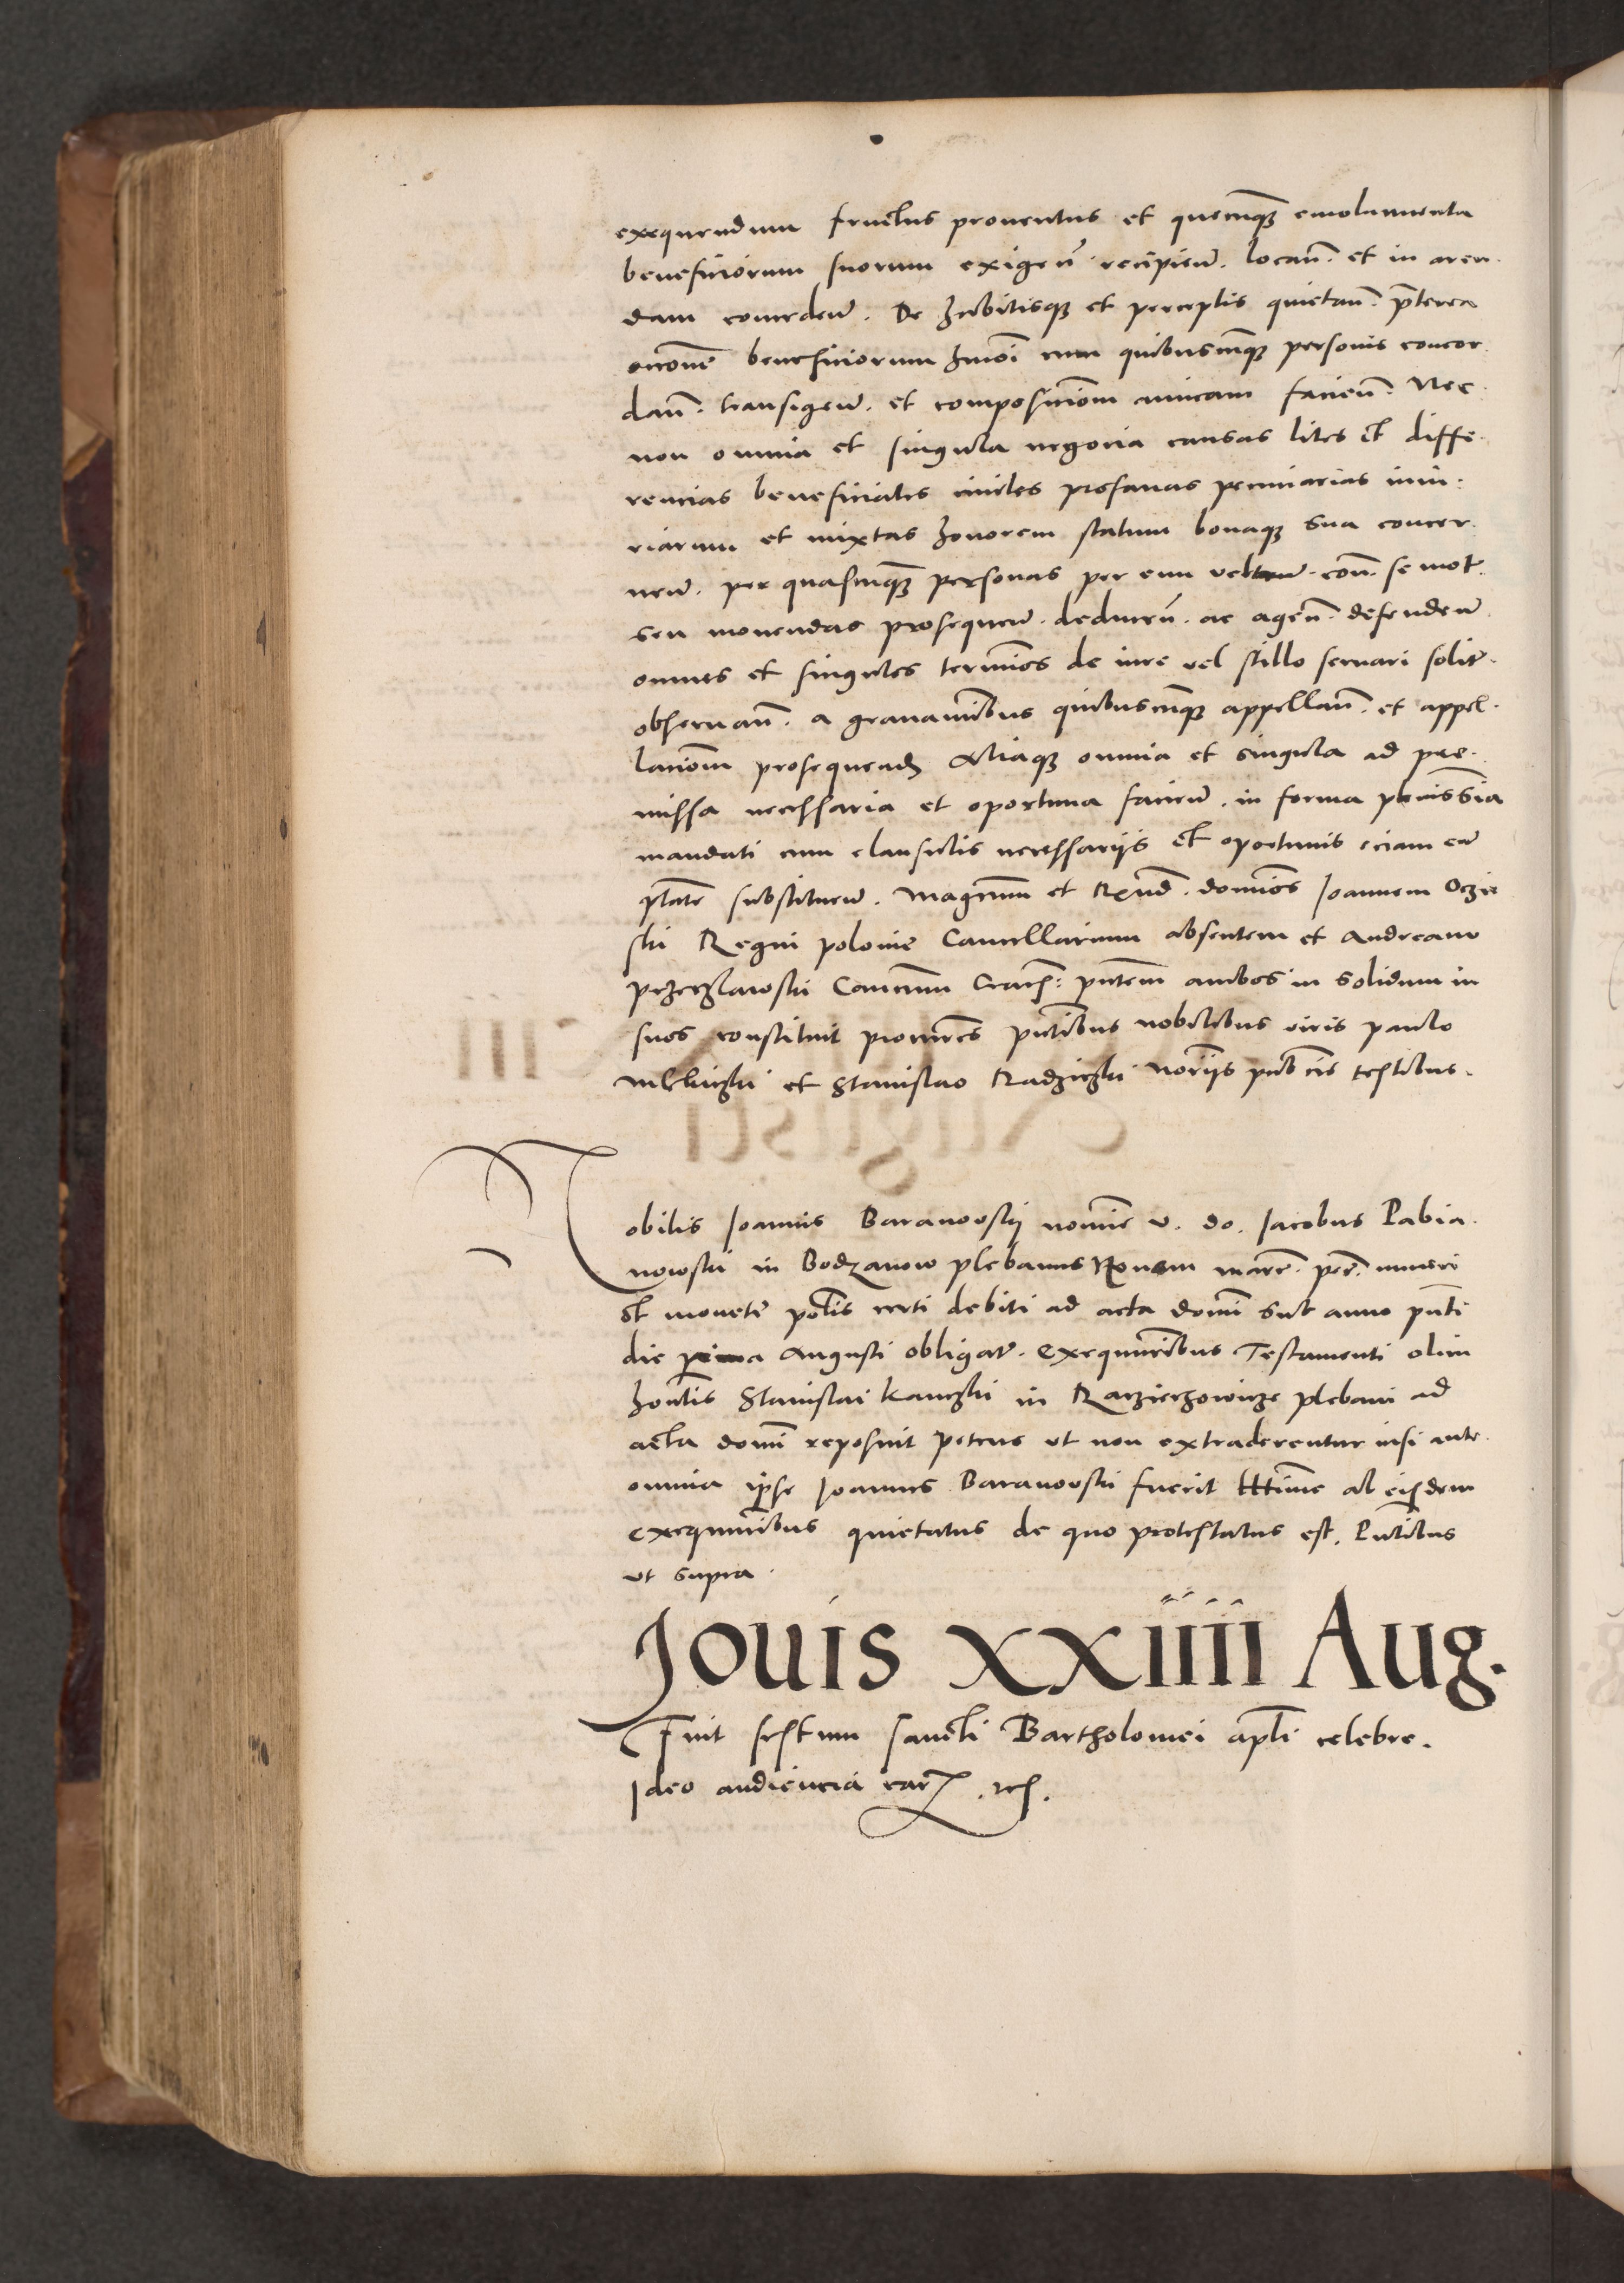 exequendum fructus proventus et quecunq3 emolumenta
beneficiorum suorum exigen̄ recipien̄. locan̄. et in aren-
dam conceden̄. De habitisq3 et perceptis quietan̄. p̄terea
oncōne beneficiorum hmōi cum quibuscunq3 personis concor-
dan̄. transigen̄. et compositiōm amicam facien̄. Nec
non omnia et singula negocia causas lites et diffe-
rencias beneficiales civiles profanas pecuniarias iniu-
riarum et mixtas honorem statum bonaq3 sua concer-
nen̄. per quascunq3 personas per eum vel con̄. se mot.
seu movendas prosequen̄. deducen̄. ac agen̄. defenden̄
omnes et singulos termīos de iure vel stillo servari solit.
observan̄. a gravamībus quibuscunq3 appellan̄. et appel-
laciōm prosequend Aliaq3 omnia et singula ad pre-
missa necessaria et oportuna facien̄. in forma plenissīa
mandati cum clausulis necessarijs et oportunis eciam cū
ptāte substituen̄. Magcūm et Rēnd. domīos Joannem Oczie
ski Regni polonie Cancellarium absentem et Andream
Przeczlawski Canōcum Cracō: pn̄tem ambos in solidum in
suos constituit procur̄es pn̄tibus nobilibus viris paulo
et Stanislao Radziczki nōrijs publīcis testibus.
Nobilis Joannis Baranowskij nomīe v. do. Jacobus Pabia-
nowski in Bodzanow plebanus Novem marc. pec. numeri
et monete polōlis certi debiti ad acta domī sub anno pn̄ti
die prima Augusti obligat. Exequutōribus Testamenti olim
honlis Stanislai Kanczki in Raczieczowicze plebani ad
acta domī reposuit petens ut non extraderentur nisi ante
omnia ipse Joannes Baranowski fuerit ltt̄ime ab eisdem
exequutōribus quietatus de quo protestatus est. Pn̄tibus
ut supra.
Jovis xxiiii Aug.
Fuit festum sancti Bartholomei apl̄i celebre.
Ideo audiencia